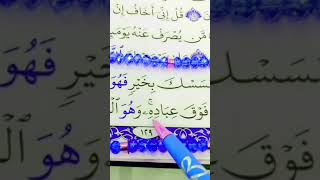 قُلْ إِنِّىٓ أَخَافُ إِنْ
مَّن يُصْرَفْ عَنْهُ يَوْمَئِ
سَسْكَ بِخَيْرٍ فَهُوَ
فَوْقَ عِبَادِهِۦۚ وَهُوَ ٱلْ
١٢٩